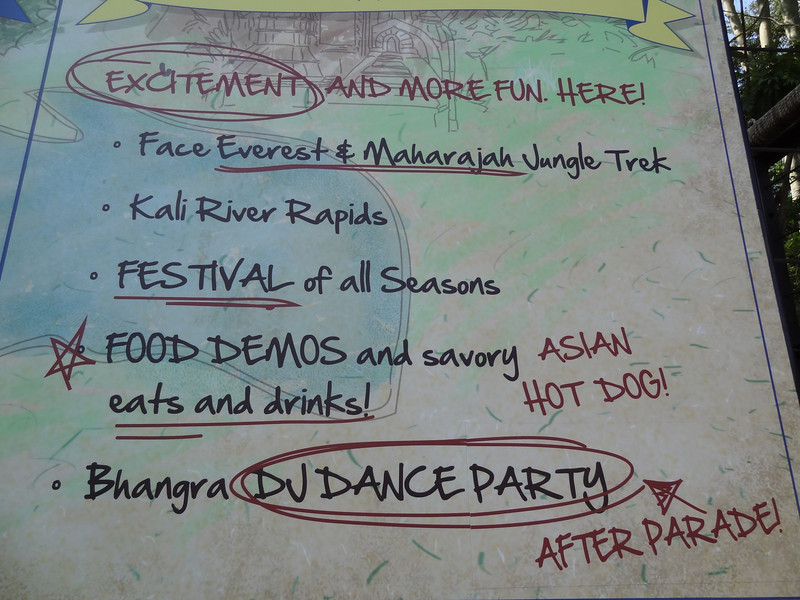 EXCITEMENT AND MORE FUN. HERE!
• Face Everest & Maharajah Jungle Trek
• Kali River Rapids
• FESTIVAL of all Seasons
• FOOD DEMOS and savory ASIAN
eats and drinks! HOT DOG!
• Bhangra DJ DANCE PARTY
AFTER PARADE!